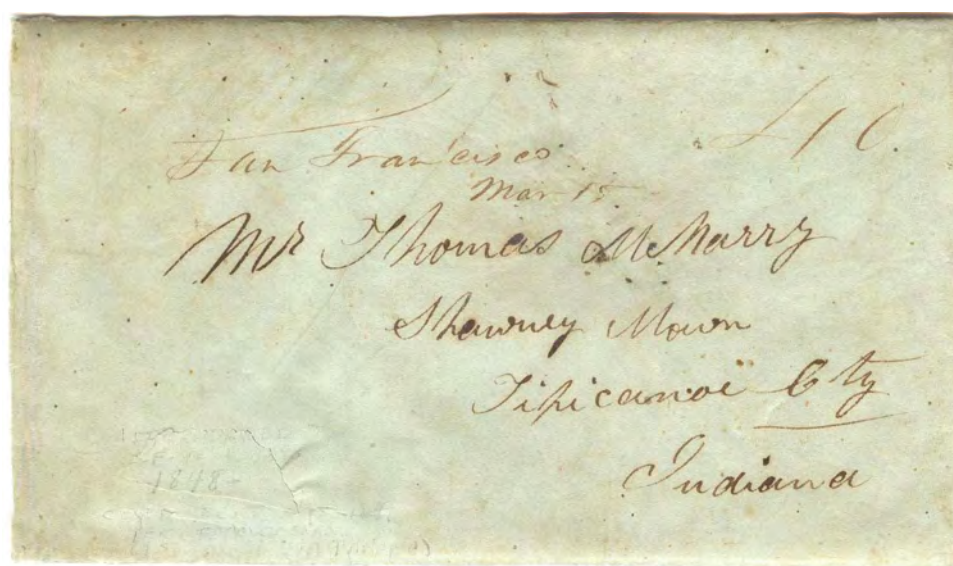 San Francisco. 410.
Mar 15
Mr Thomas McHarry
Shawney Moun
Tipicanoe Cty
Indiana
1848